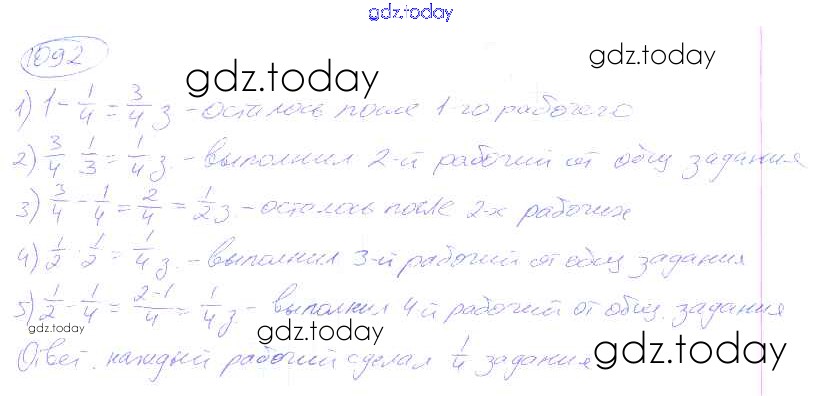 gdz.today
1092
gdz.today
gdz.today
1) 1 - 1/4 = 3/4 з - осталось после 1-го рабочего
2) 3/4 · 1/3 = 1/4 з. - выполнил 2-й рабочий от общ задания
3) 3/4 - 1/4 = 2/4 = 1/2 з. - осталось после 2-х рабочих
4) 1/2 · 1/2 = 1/4 з. - выполнил 3-й рабочий от общ задания
5) 1/2 - 1/4 = 2-1/4 = 1/4 з - выполнил 4й рабочий от общ. задания
gdz.today
gdz.today
gdz.today
Ответ. каждый рабочий сделал 1/4 задания